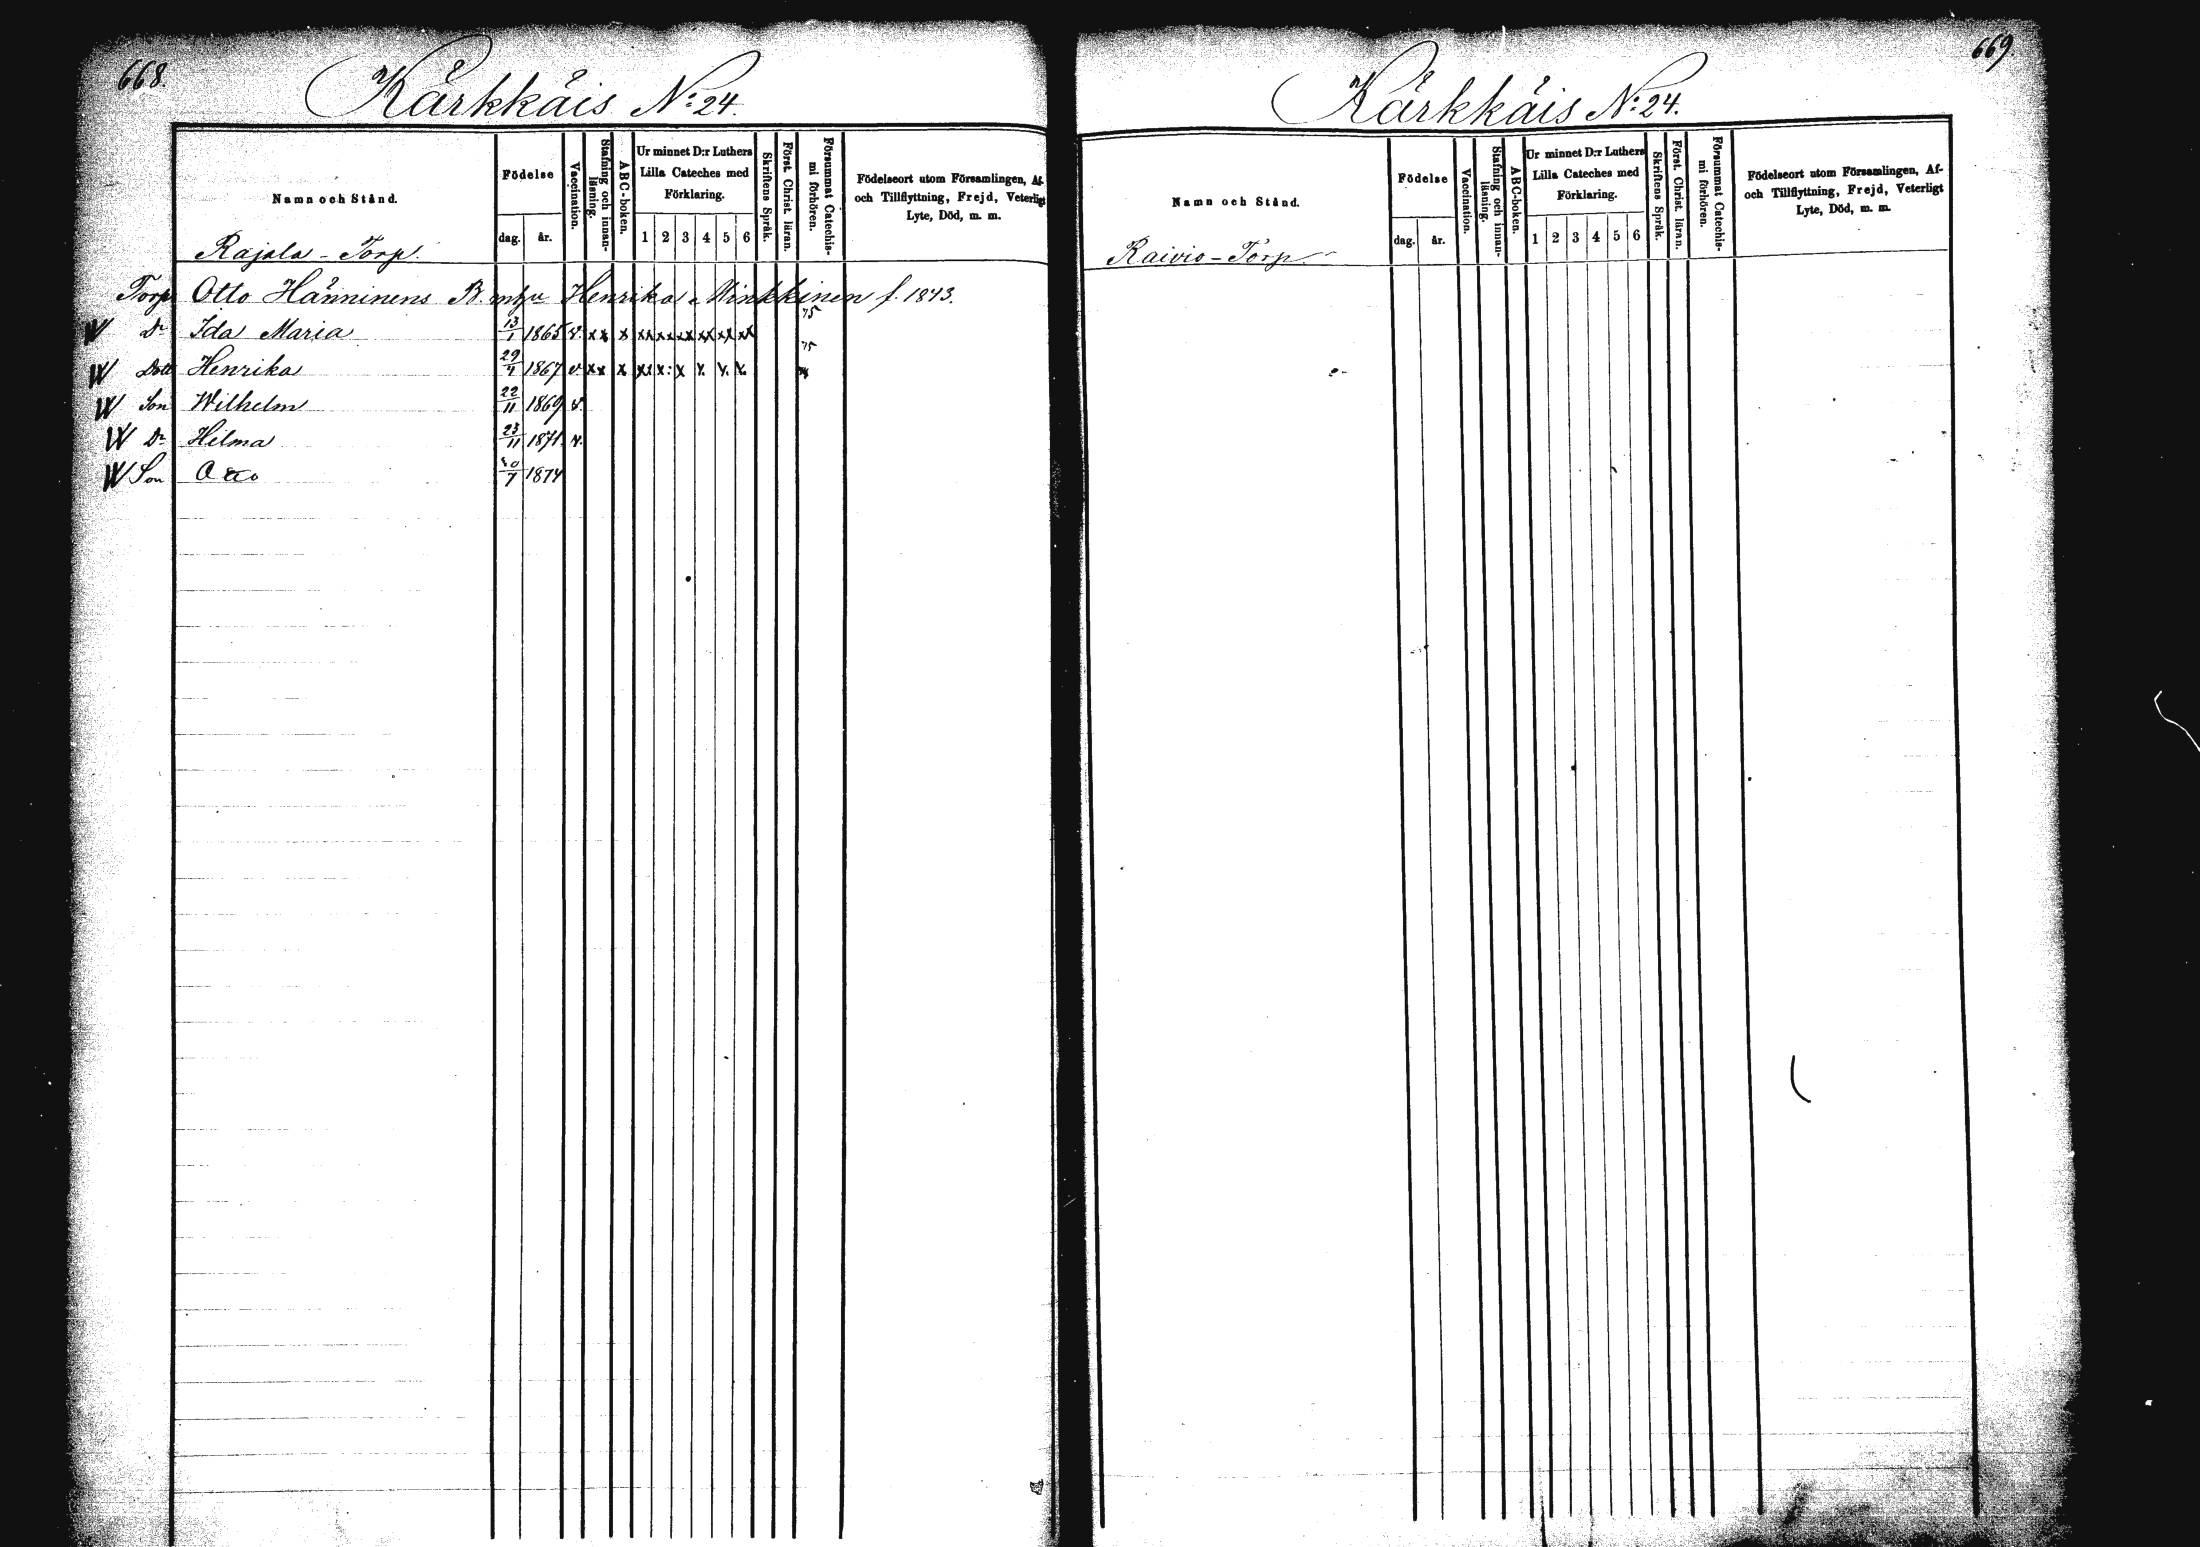 668.
Kärkkäis No: 24.
Namn och Stånd.
Födelse
dag. år.
Vaccination.
Stafning och innan-
läsning.
ABC-boken.
Ur minnet D:r Luthers
Lilla Cateches med
Förklaring.
1 2 3 4 5 6
Skriftens Språk.
Först. Christ. läran.
Försummat Catechis-
mi förhören.
Födelseort utom Församlingen, Af-
och Tillflyttning, Frejd, Veterligt
Lyte, Död, m. m.
Rajala - Torp.
Torp Otto Hänninens B. m h u Henrika Minkkinen f. 1843.
W Dr Ida Maria 13/1 1865 v. xx x xx xx xx xx xx xx 75
W Dott Henrika 29/4 1867 v. xx x xx x: x x. x. x. 75
W Son Wilhelm 22/11 1869 v.
W Dr Hilma 23/11 1871. v.
W Son Otto /7 1874
669.
Kärkkäis No: 24.
Namn och Stånd.
Födelse
dag. år.
Vaccination.
Stafning och innan-
läsning.
ABC-boken.
Ur minnet D:r Luthers
Lilla Cateches med
Förklaring.
1 2 3 4 5 6
Skriftens Språk.
Först. Christ. läran.
Försummat Catechis-
mi förhören.
Födelseort utom Församlingen, Af-
och Tillflyttning, Frejd, Veterligt
Lyte, Död, m. m.
Raivio - Torp.